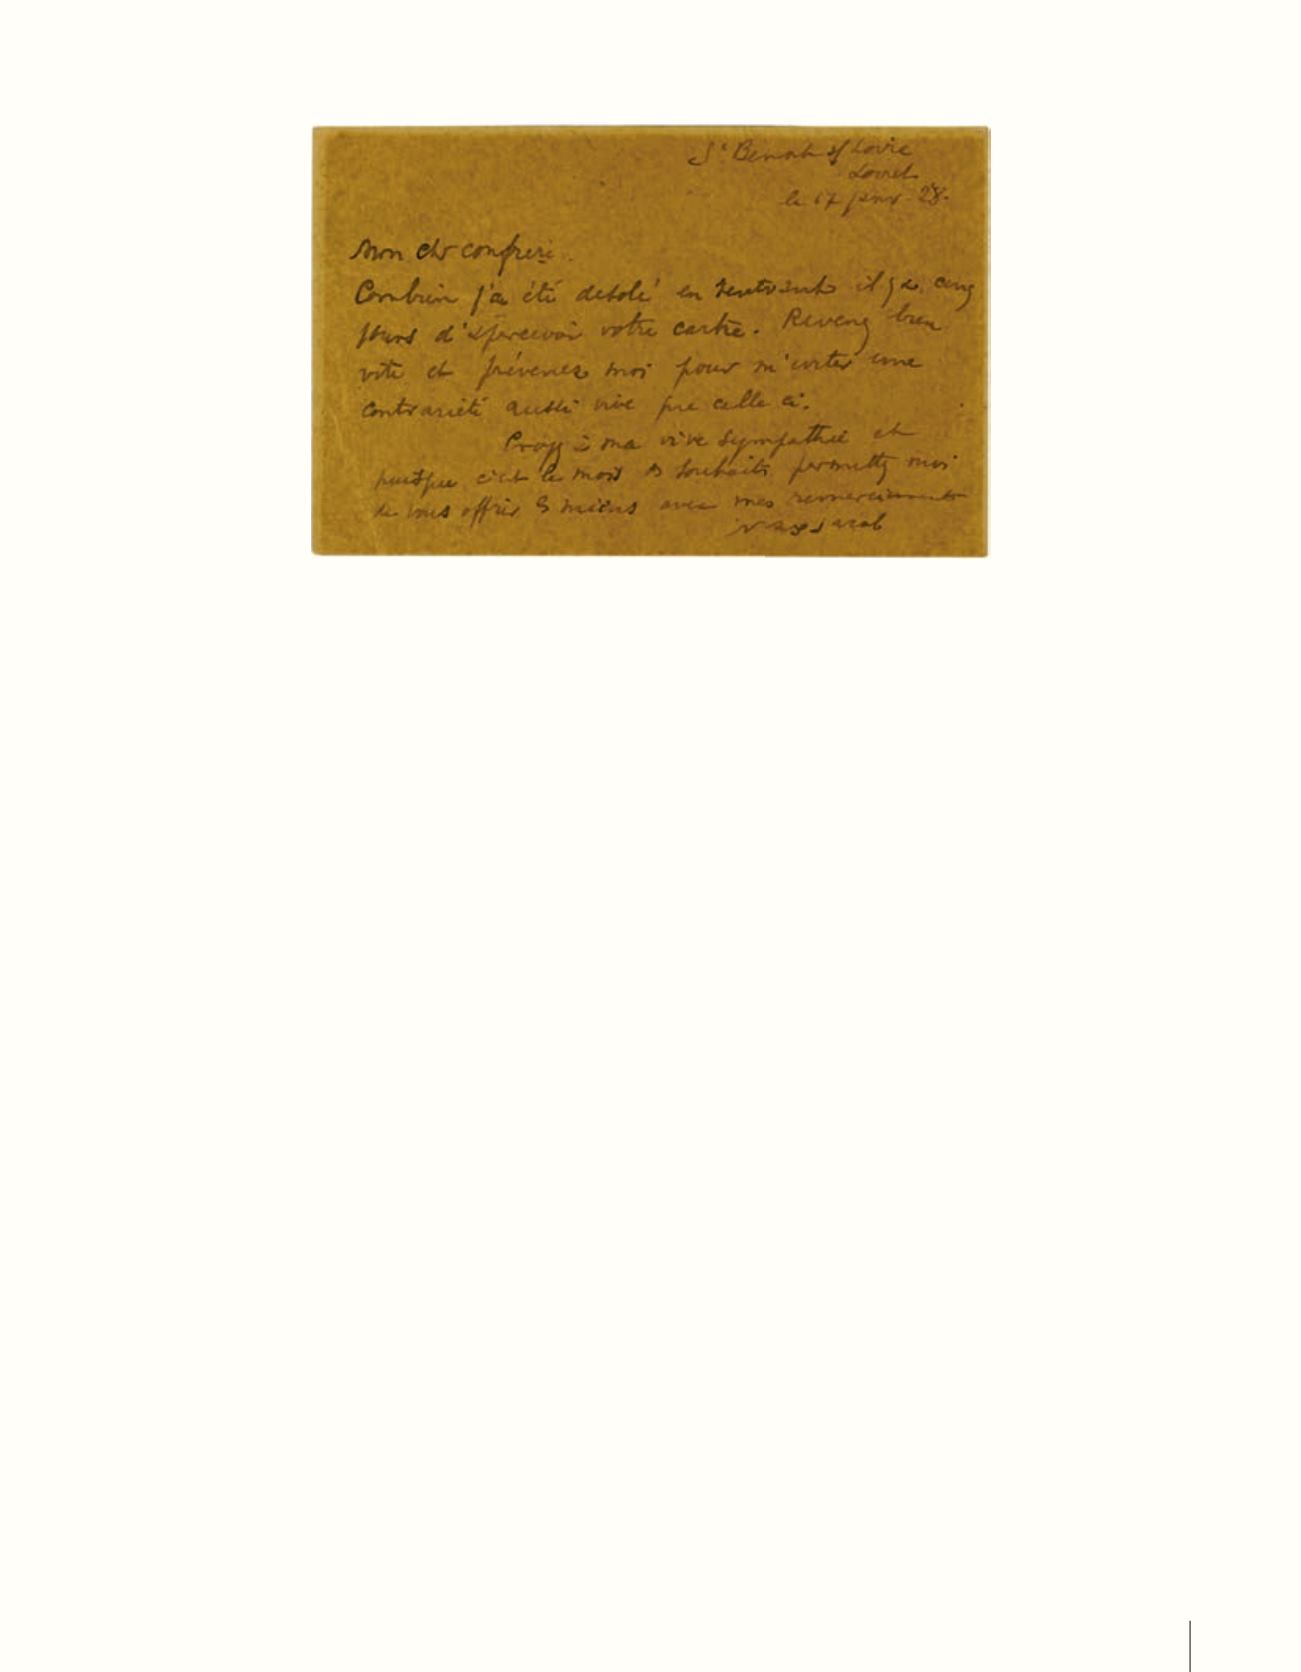 St Benoit s/ Loire
Loiret
le 17 janv. 28.
Mon chr confrere.
Combien j'ai été désolé en rentrant il y a cinq
jours d'apercevoir votre carte. Revenez bien
vite et prévenez moi pour m'eviter une
contrariété aussi vive que celle ci.
Croyz à ma vive sympathie et
puisque c'est le mois ds souhaits permettz moi
de vous offrir ls miens avec mes remerciements
Max Jacob